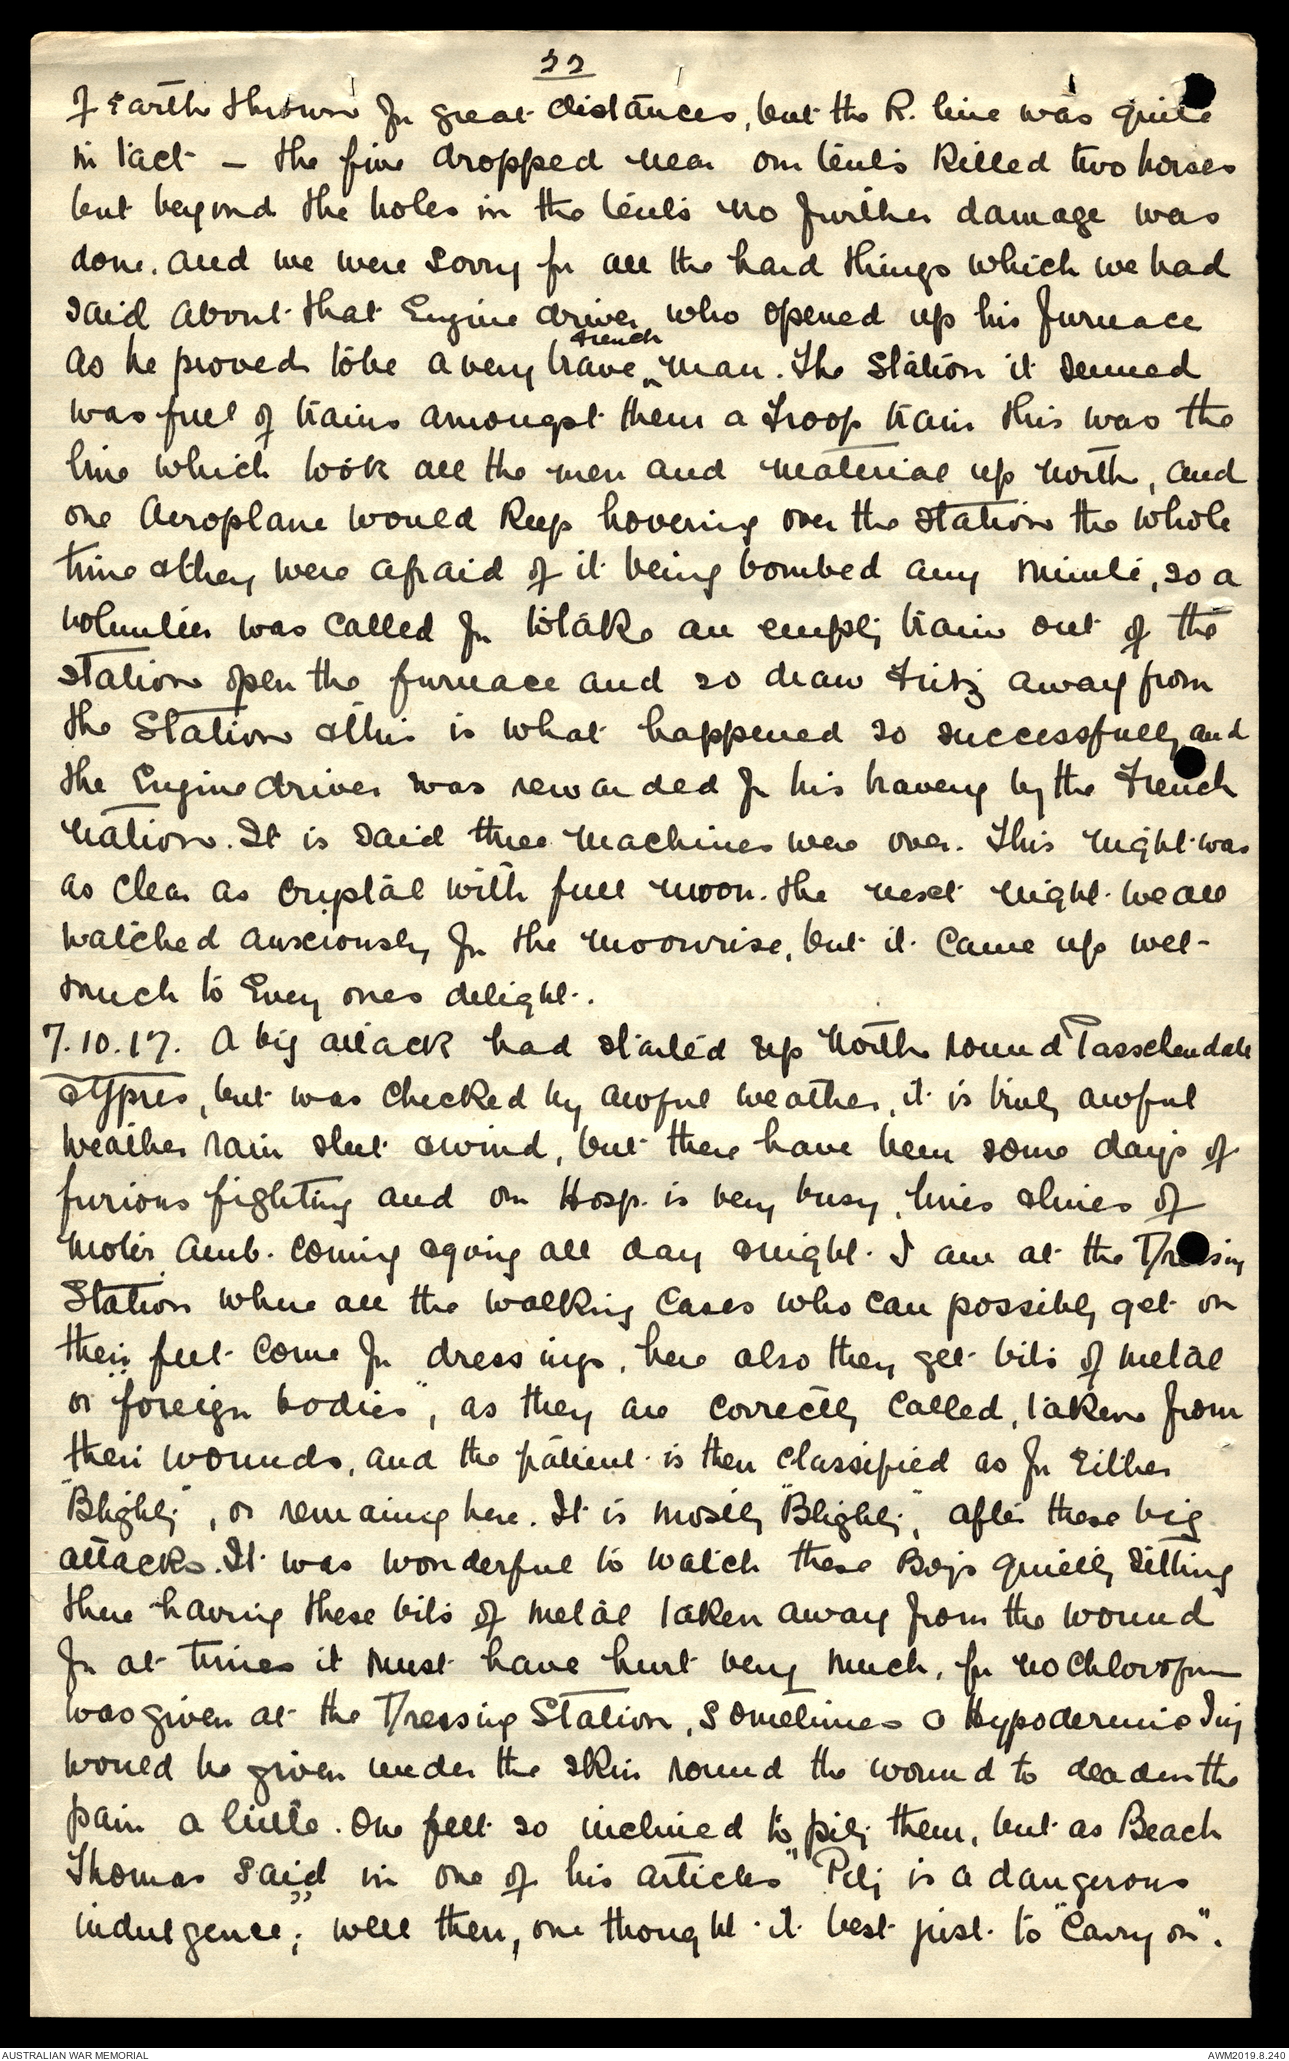 22
of earth thrown for great distances, but the R. line was quite
in tact - the five dropped near our tents killed two horses
but beyond the holes in the tents no further damage was
done. And we were sorry for all the hard things which we had
said about that Engine driver who opened up his furnace
as he proved to be a very brave ^French man. The Station it seemed
was full of trains amongst them a Troop train this was the
line which took all the men and material up North, and
one Aeroplane would keep hovering over the station the whole
time & they were afraid of it being bombed any minute, so a
volunteer was called for to take an empty train out of the
station open the furnace and so draw Fritz away from
the Station & this is what happened so successfully and
the Engine driver was rewarded for his bravery by the French
nation. It is said three machines were over. This night was
as clear as crystal with full moon. The next night we all
watched anxiously for the moonrise, but it came up wet -
much to Every ones delight.
7.10.17. A big attack had started up North round Passchendale
& Ypres, but was checked by awful weather, it is truly awful
weather rain sleet & wind, but there have been some days of
furious fighting and our Hosp. is very busy, lines & lines of
Motor Amb. coming & going all day & night. I am at the Dressing
Station where all the walking cases who can possibly get on
their feet come for dressings, here also they get bits of metal
or "foreign bodies", as they are correctly called, taken from
their wounds, and the patient is then classified as for Either
"Blighty", or remaining here. It is mostly "Blighty", after these big
attacks. It was wonderful to watch these Boys quietly sitting
there having these bits of metal taken away from the wound
for at times it must have hurt very much, for no Chloroform
was given at the Dressing Station, sometimes a Hypodermic Inj
would be given under the skin round the wound to deaden the
pain a little. One felt so inclined to pity them, but as Beach
Thomas said in one of his articles "Pity is a dangerous
indulgence"; well then, one thought it best just to "Carry on".
AUSTRALIAN WAR MEMORIAL
AWM2019.8.240